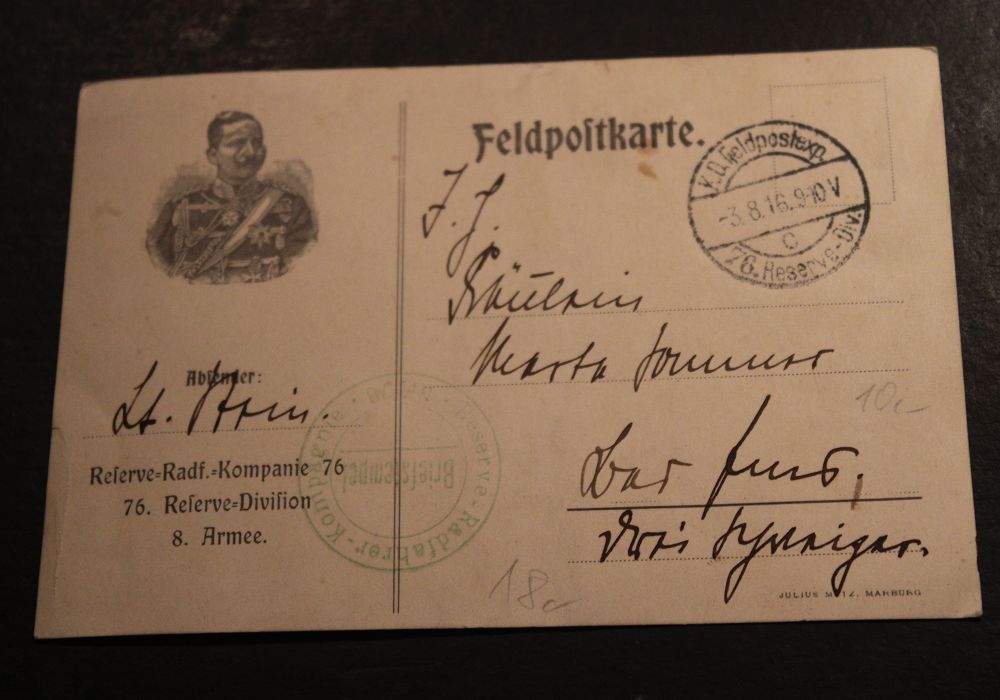 Feldpoſtkarte.
K.D. Feldpostexp.
-3.8.16.9-10V
c
76. Reserve-Div.
Fräulein
Marta Sommer
Abſender:
Lt. Stein.
Reſerve=Radf.=Kompanie 76
76. Reſerve=Diviſion
8. Armee.
Reserve-Radfahrer-Kompagnie
Briefstempel
Bad Ems,
10,-
18,-
JULIUS METZ, MARBURG